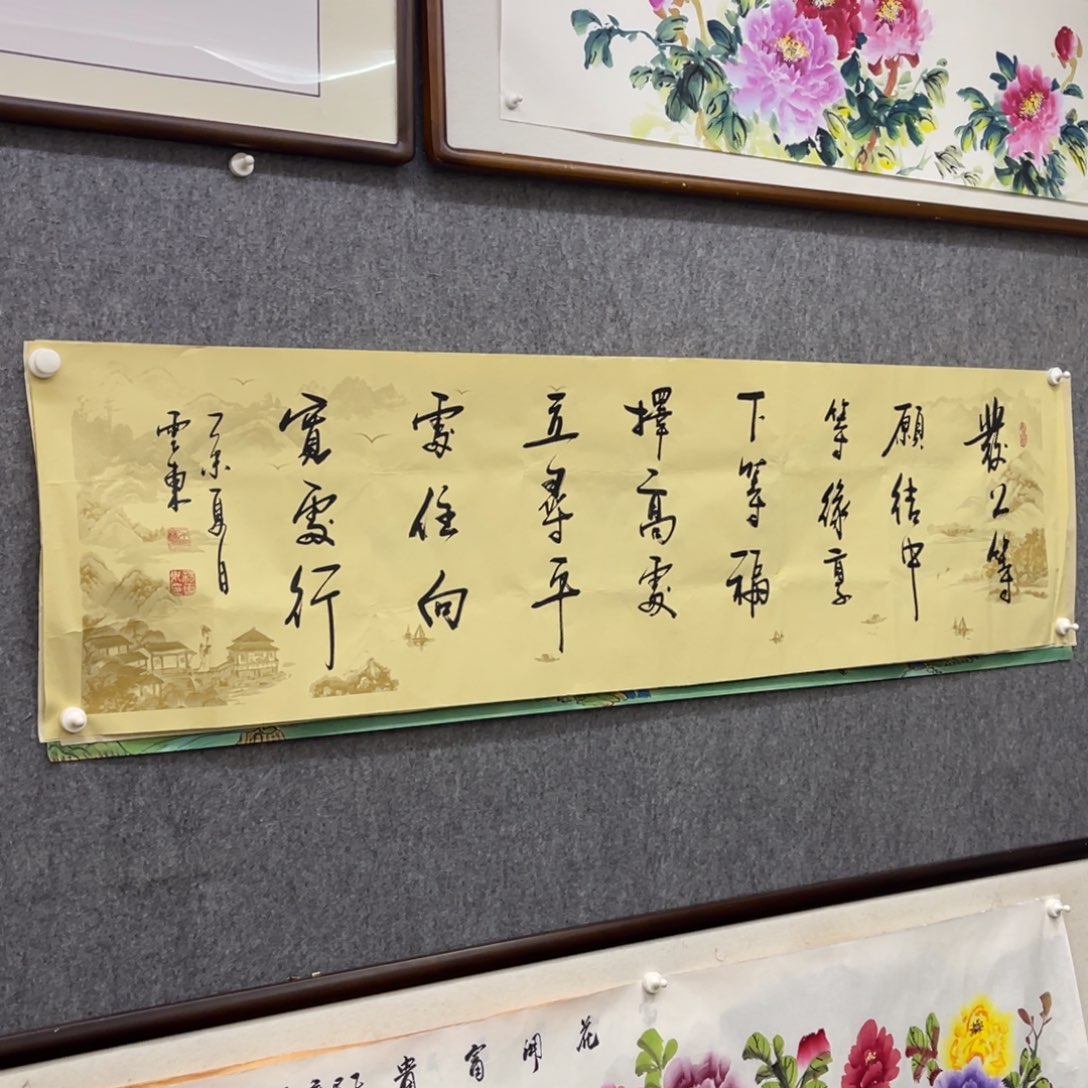 發上等
願結中
等緣享
下等福
擇高處
立尋平
處住向
寬處行
夏月
雲東
花開富貴